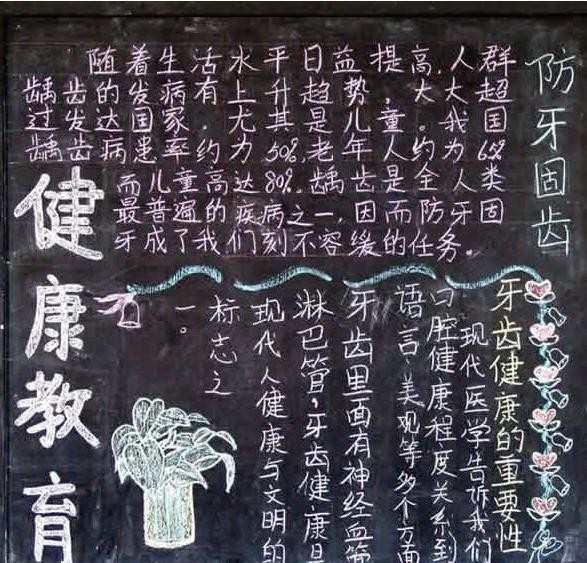 健康教育
防牙固齿
随着生活水平日益提高，人群
龋齿的发病有上升趋势，大大超
过发达国家．尤其是儿童。我国
龋齿病患率约为50%，老年人约为65%
而儿童高达80%，龋齿是全人类
最普遍的疾病之一，因而防牙固
牙成了我们刻不容缓的任务。
牙齿健康的重要性
现代医学告诉我们
口腔健康程度关系到
语言、美观等多个方面
牙齿里面有神经血管
淋巴管，牙齿健康是
现代人健康与文明的
标志之
一。